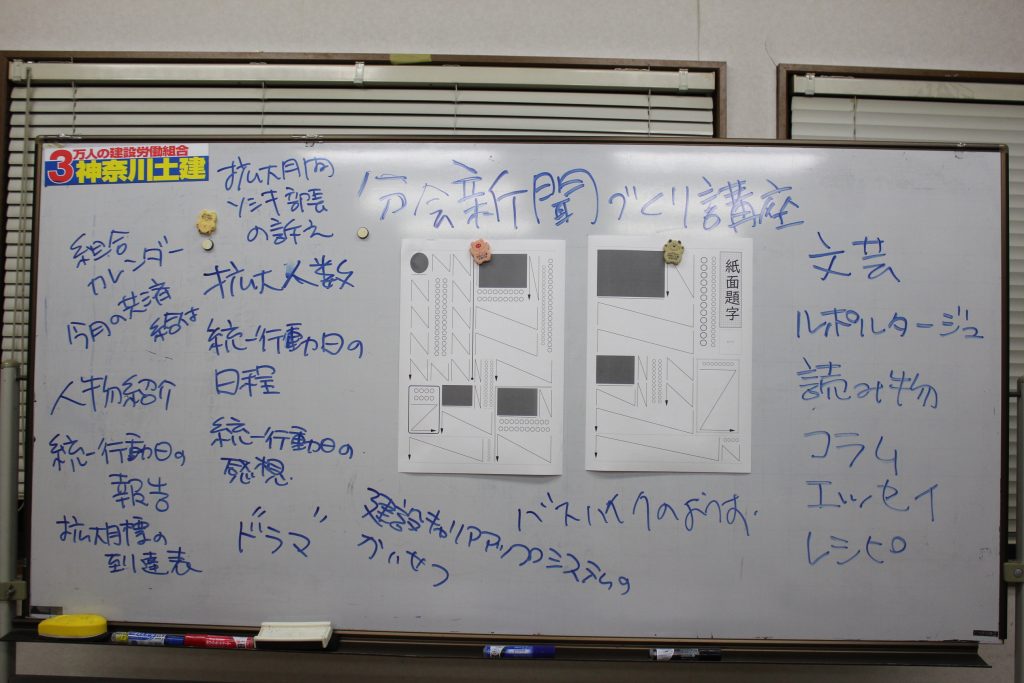 3万人の建設労働組合
神奈川土建
分会新聞づくり講座
拡大月間
ソシキ部長
の訴え
拡大人数
統一行動日の
日程
統一行動日の
感想
ドラマ
組合
カレンダー
今月の共済
給付
人物紹介
統一行動日の
報告
拡大目標の
到達表
紙面題字
建設キャリアアップシステムの
かいせつ
バスハイクのようす.
文芸
ルポルタージュ
読み物
コラム
エッセイ
レシピ